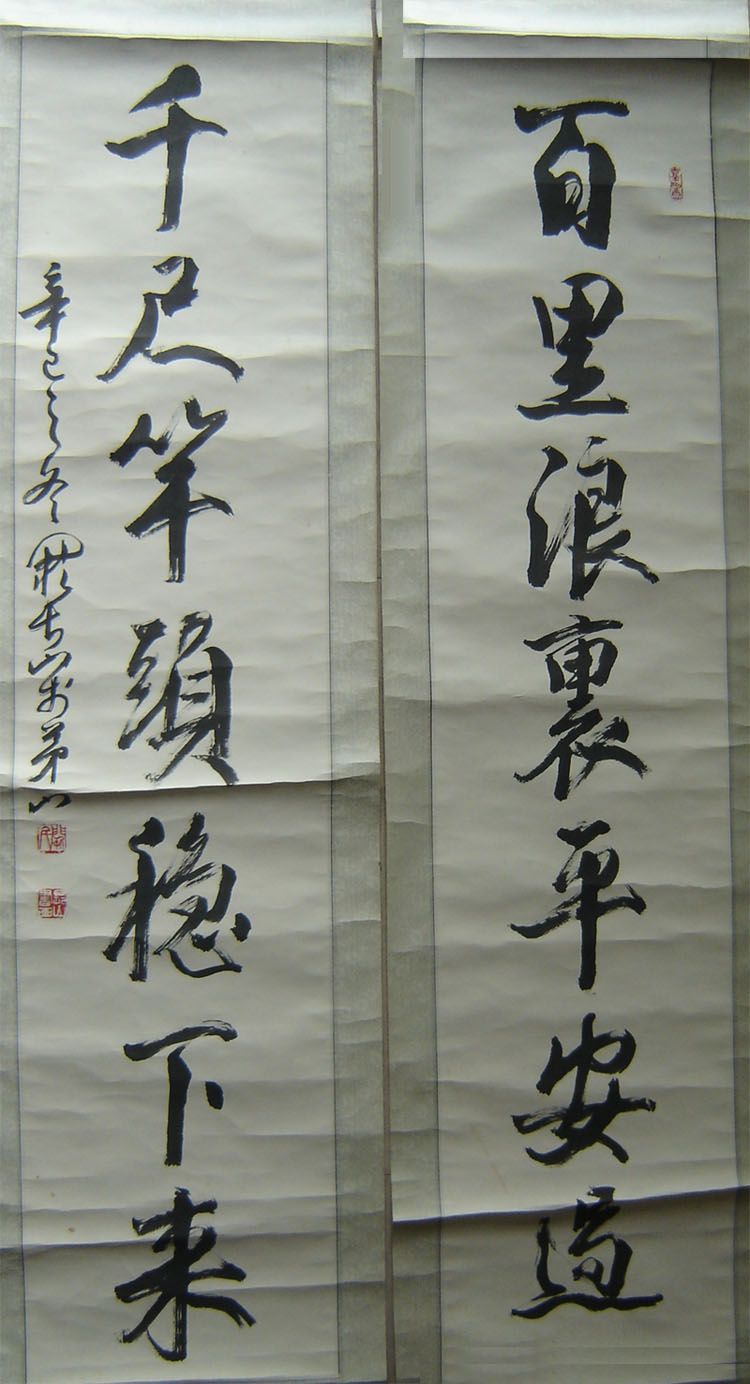 百里浪裏平安過
千尺竿頭稳下来
辛巳之冬